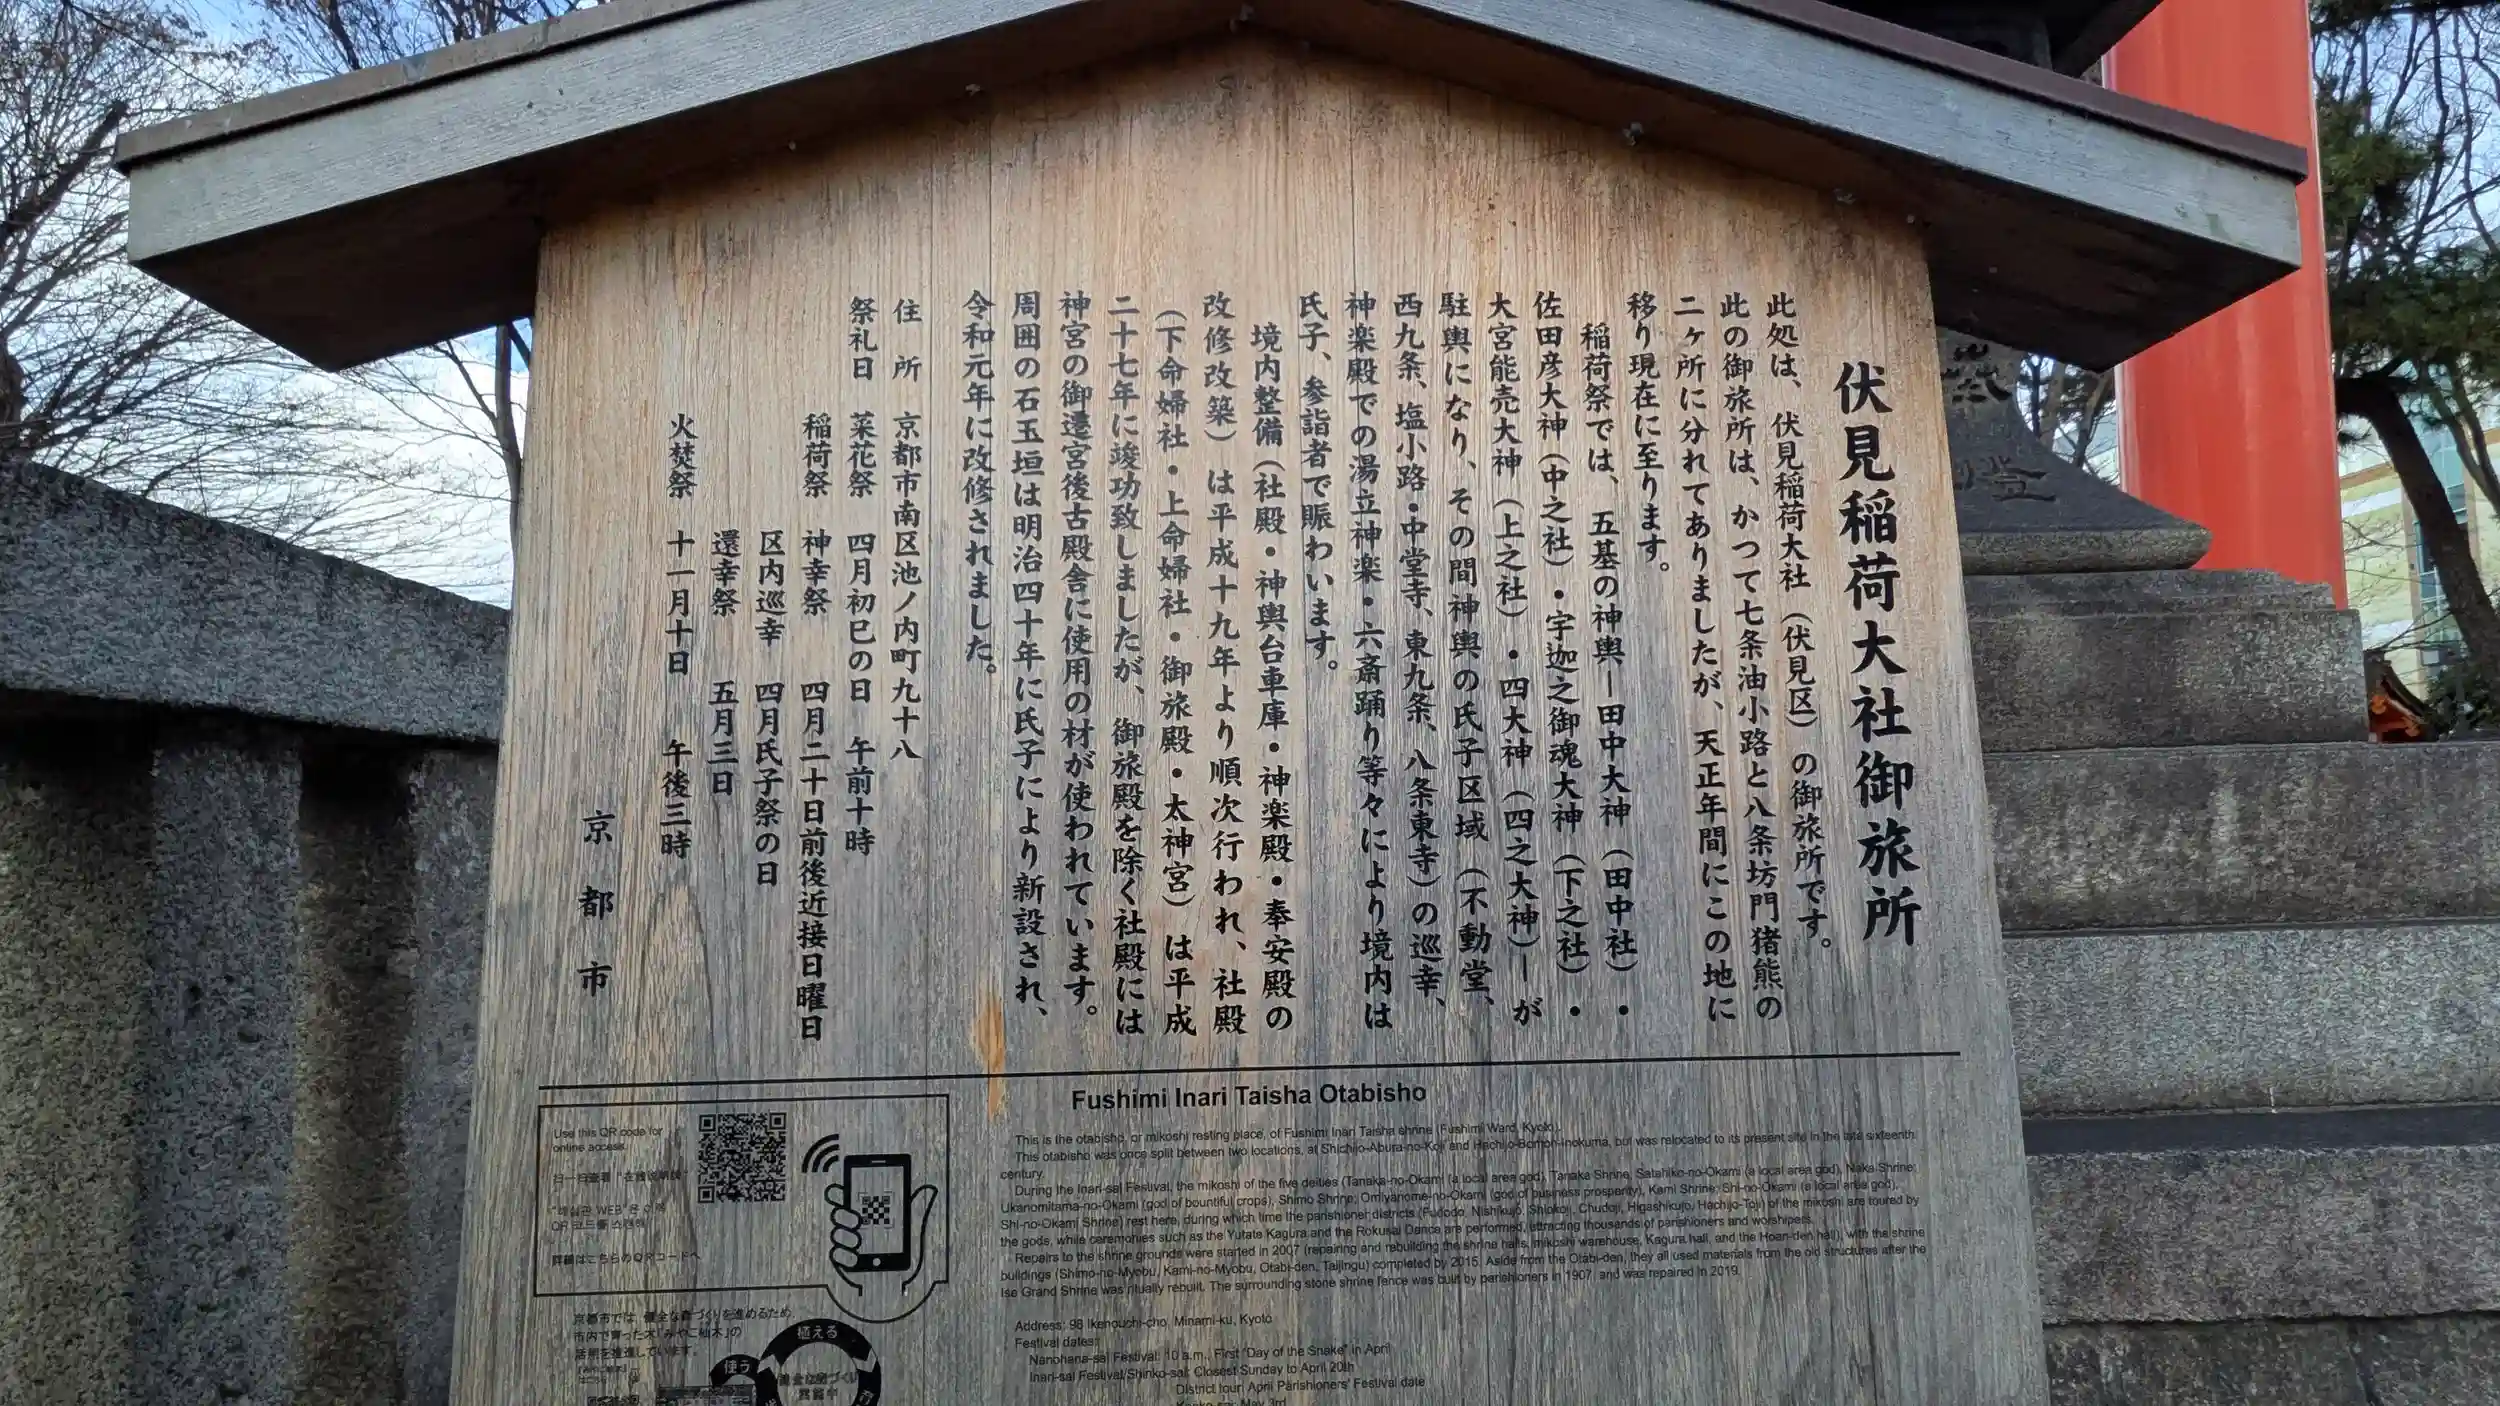 伏見稲荷大社御旅所
此処は、伏見稲荷大社（伏見区）の御旅所です。
此の御旅所は、かつて七条油小路と八条坊門猪熊の
二ヶ所に分れてありましたが、天正年間にこの地に
移り現在に至ります。
稲荷祭では、五基の神輿ー田中大神（田中社）・
佐田彦大神（中之社）・宇迦之御魂大神（下之社）・
大宮能売大神（上之社）・四大神（四之大神）ーが
駐輿になり、その間神輿の氏子区域（不動堂、
西九条、塩小路・中堂寺、東九条、八条東寺）の巡幸、
神楽殿での湯立神楽・六斎踊り等々により境内は
氏子、参詣者で賑わいます。
境内整備（社殿・神輿台車庫・神楽殿・奉安殿の
改修改築）は平成十九年より順次行われ、社殿
（下命婦社・上命婦社・御旅殿・太神宮）は平成
二十七年に竣功致しましたが、御旅殿を除く社殿には
神宮の御遷宮後古殿舎に使用の材が使われています。
周囲の石玉垣は明治四十年に氏子により新設され、
令和元年に改修されました。
住　所　京都市南区池ノ内町九十八
祭礼日　菜花祭　四月初巳の日　午前十時
稲荷祭　神幸祭　四月二十日前後近接日曜日
区内巡幸　四月氏子祭の日
還幸祭　五月三日
火焚祭　十一月十日　午後三時
京都市
Fushimi Inari Taisha Otabisho
This is the otabisho, or mikoshi resting place, of Fushimi Inari Taisha shrine (Fushimi Ward, Kyoto).
This otabisho was once split between two locations, at Shichijo-Abura-no-Koji and Hachijo-Bomon-Inokuma, but was relocated to its present site in the late sixteenth
century.
During the Inari-sai Festival, the mikoshi of the five deities (Tanaka-no-Okami (a local area god), Tanaka Shrine; Satahiko-no-Okami (a local area god), Naka Shrine;
Ukanomitama-no-Okami (god of bountiful crops), Shimo Shrine; Omiyanome-no-Okami (god of business prosperity), Kami Shrine; Shi-no-Okami (a local area god),
Shi-no-Okami Shrine) rest here, during which time the parishioner districts (Fudodo, Nishikujo, Shiokoji, Chudoji, Higashikujo, Hachijo-Toji) of the mikoshi are toured by
the gods, while ceremonies such as the Yutate Kagura and the Rokusai Dance are performed, attracting thousands of parishioners and worshipers.
Repairs to the shrine grounds were started in 2007 (repairing and rebuilding the shrine halls, mikoshi warehouse, Kagura hall, and the Hoan-den hall), with the shrine
buildings (Shimo-no-Myobu, Kami-no-Myobu, Otabi-den, Taijingu) completed by 2015. Aside from the Otabi-den, they all used materials from the old structures after the
Ise Grand Shrine was ritually rebuilt. The surrounding stone shrine fence was built by parishioners in 1907, and was repaired in 2019.
Address: 98 Ikenouchi-cho, Minami-ku, Kyoto
Festival dates:
Nanohana-sai Festival: 10 a.m., First "Day of the Snake" in April
Inari-sai Festival/Shinko-sai: Closest Sunday to April 20th
District tour: April Parishioners' Festival date
Use this QR code for
online access.
QR 코드를 스캔해
詳細はこちらのQRコードへ
京都市では、健全な森づくりを進めるため、
市内で育った木「みやこ杣木」の
活用を推進しています。
植える
使う